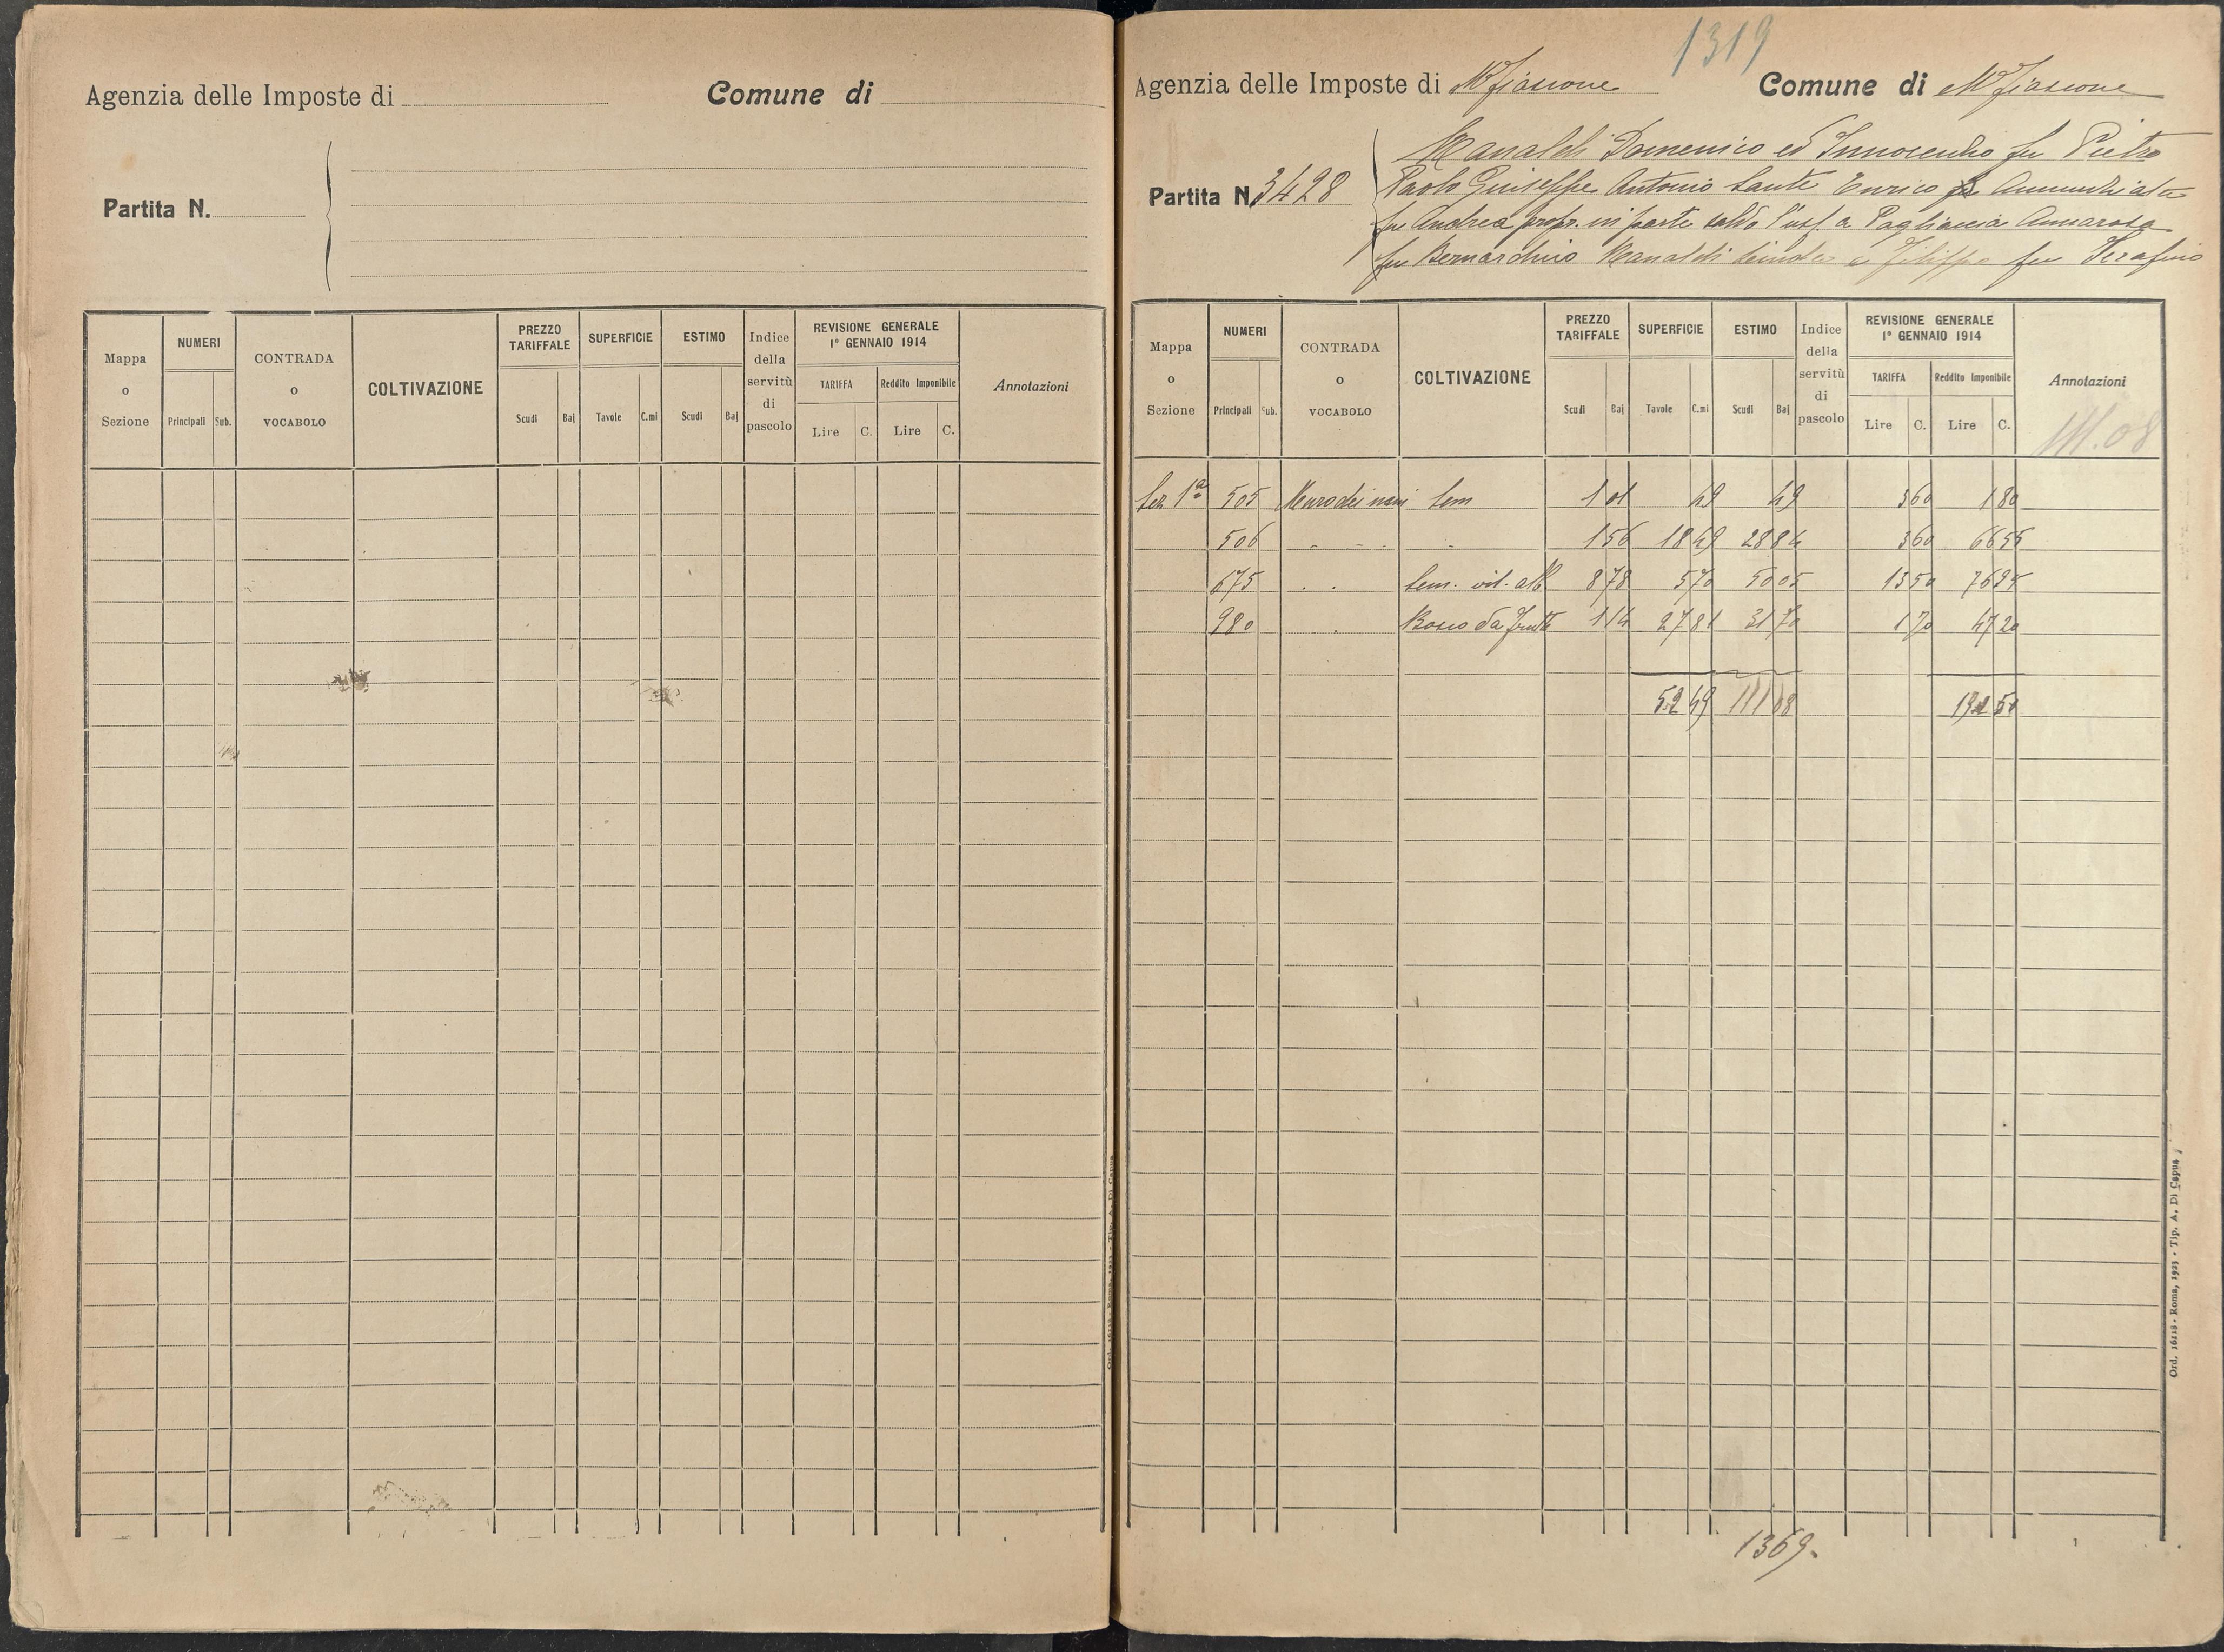 Agenzia delle Imposte di
Comune di
Partita N.
Mappa o Sezione
NUMERI
Principali
Sub.
CONTRADA o VOCABOLO
COLTIVAZIONE
PREZZO TARIFFALE
Scudi
Baj
SUPERFICIE
Tavole
C.mi
ESTIMO
Scudi
Baj
Indice della servitù di pascolo
REVISIONE GENERALE
1° GENNAIO 1914
TARIFFA
Lire
C.
Reddito Imponibile
Lire
C.
Annotazioni
1319
Agenzia delle Imposte di Mfiascone
Comune di Mfiascone
Partita N. 3428
Manaldi Domenico ed Innocenzo fu Pietro
Paolo Giuseppe Antonio Sante Enrico Annunziata
fu Andrea propr. in parte salvo l'usf. a Pagliaccia Annarosa
fu Bernardino Manaldi e Filippo fu Serafino
Mappa o Sezione
NUMERI
Principali
Sub.
CONTRADA o VOCABOLO
COLTIVAZIONE
PREZZO TARIFFALE
Scudi
Baj
SUPERFICIE
Tavole
C.mi
ESTIMO
Scudi
Baj
Indice della servitù di pascolo
REVISIONE GENERALE
1° GENNAIO 1914
TARIFFA
Lire
C.
Reddito Imponibile
Lire
C.
Annotazioni
111.08
Sez 1ª 505 Sem 1 01 49 49 3 60 1 80
506 1 56 18 49 28 84 3 60 66 56
675 Sem. vit. alb 8 78 5 70 50 05 13 50 76 95
980 Bosco da frutto 1 14 27 81 31 70 1 70 47 20
52 49 111 08 192 51
1369
Ord. 16118 - Roma, 1923 - Tip. A. Di Capua